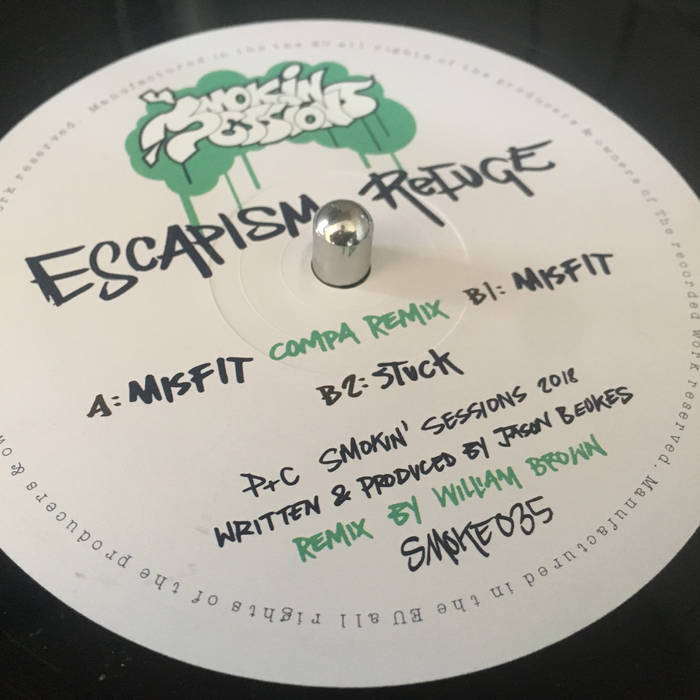 SMOKIN
SESSIONS
ESCAPISM REFUGE
A: MISFIT COMPA REMIX B1: MISFIT
B2: STUCK
P+C SMOKIN' SESSIONS 2018
WRITTEN & PRODUCED BY JASON BEUKES
REMIX BY WILLIAM BROWN
SMOKE035
Manufactured in the EU all rights of the producers & owners of The recorded work reserved. Manufactured in the EU all rights of the producers & ow
ork reserved.